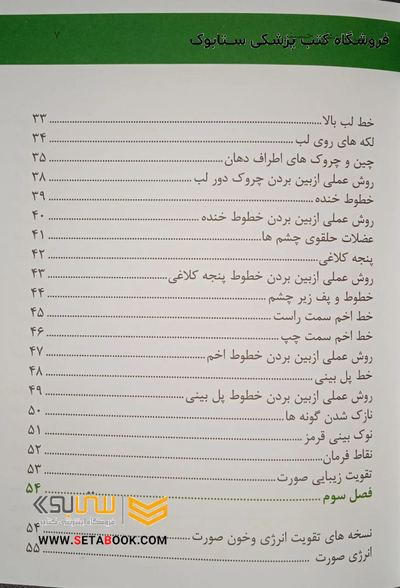 ۷
فروشگاه کتب پزشکی ستابوک
خط لب بالا ........ ۳۳
لکه های روی لب ........ ۳۴
چین و چروک های اطراف دهان ........ ۳۵
روش عملی ازبین بردن چروک دور لب ........ ۳۸
خطوط خنده ........ ۳۹
روش عملی ازبین بردن خطوط خنده ........ ۴۰
عضلات حلقوی چشم ها ........ ۴۱
پنجه کلاغی ........ ۴۲
روش عملی ازبین بردن خطوط پنجه کلاغی ........ ۴۳
خطوط و پف زیر چشم ........ ۴۴
خط اخم سمت راست ........ ۴۵
خط اخم سمت چپ ........ ۴۶
روش عملی ازبین بردن خطوط اخم ........ ۴۷
خط پل بینی ........ ۴۸
روش عملی ازبین بردن خطوط پل بینی ........ ۴۹
نازک شدن گونه ها ........ ۵۰
نوک بینی قرمز ........ ۵۱
نقاط فرمان ........ ۵۲
تقویت زیبایی صورت ........ ۵۳
فصل سوم ........ ۵۴
نسخه های تقویت انرژی وخون صورت ........ ۵۴
انرژی صورت ........ ۵۵
WWW.SETABOOK.COM